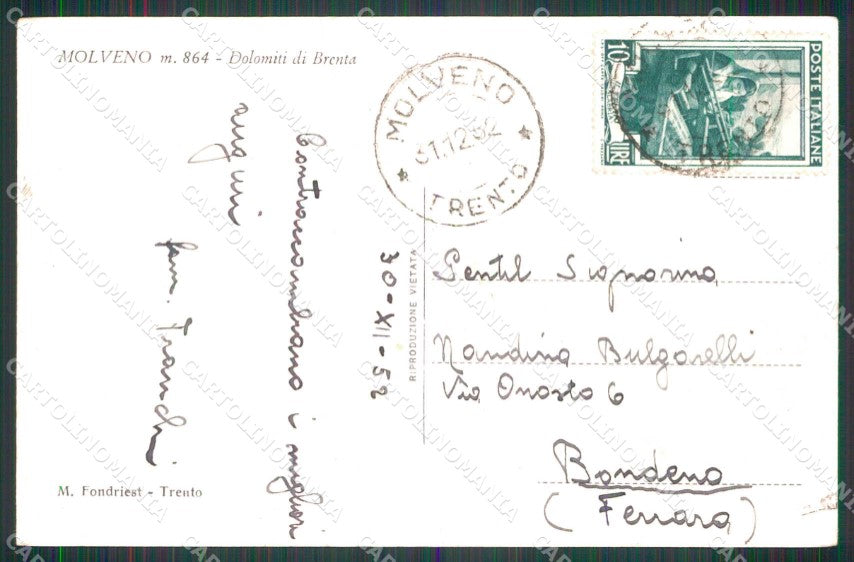 MOLVENO m. 864 - Dolomiti di Brenta
MOLVENO
31.12.52
TRENTO
10
LIRE
POSTE ITALIANE
30-XII-52
Contraccambiano i migliori
auguri
fam. Franchi
RIPRODUZIONE VIETATA
Gentil Signorina
Nandina Bulgarelli
Via Onosto 6
Bondeno
(Ferrara)
M. Fondriest - Trento
CARTOLINOMANIA